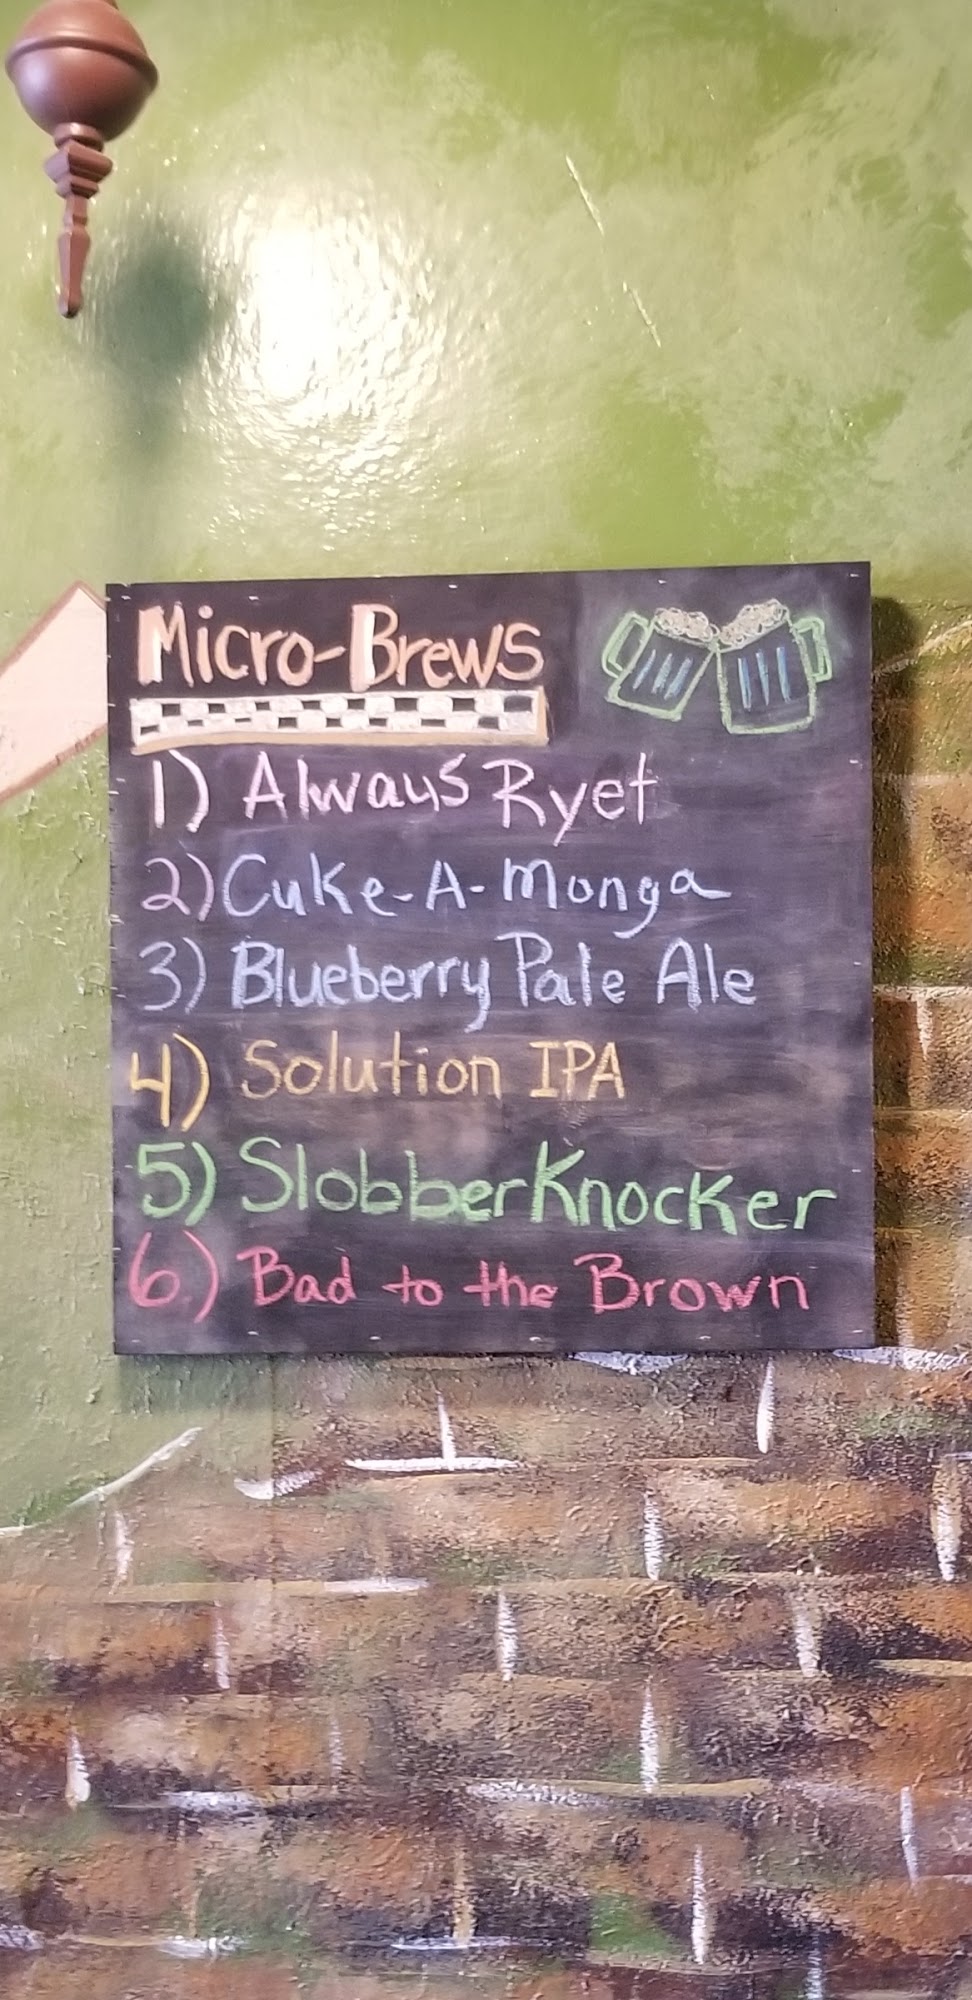 Micro-Brews
1) Always Ryet
2) Cuke-A-Monga
3) Blueberry Pale Ale
4) Solution IPA
5) SlobberKnocker
6) Bad to the Brown